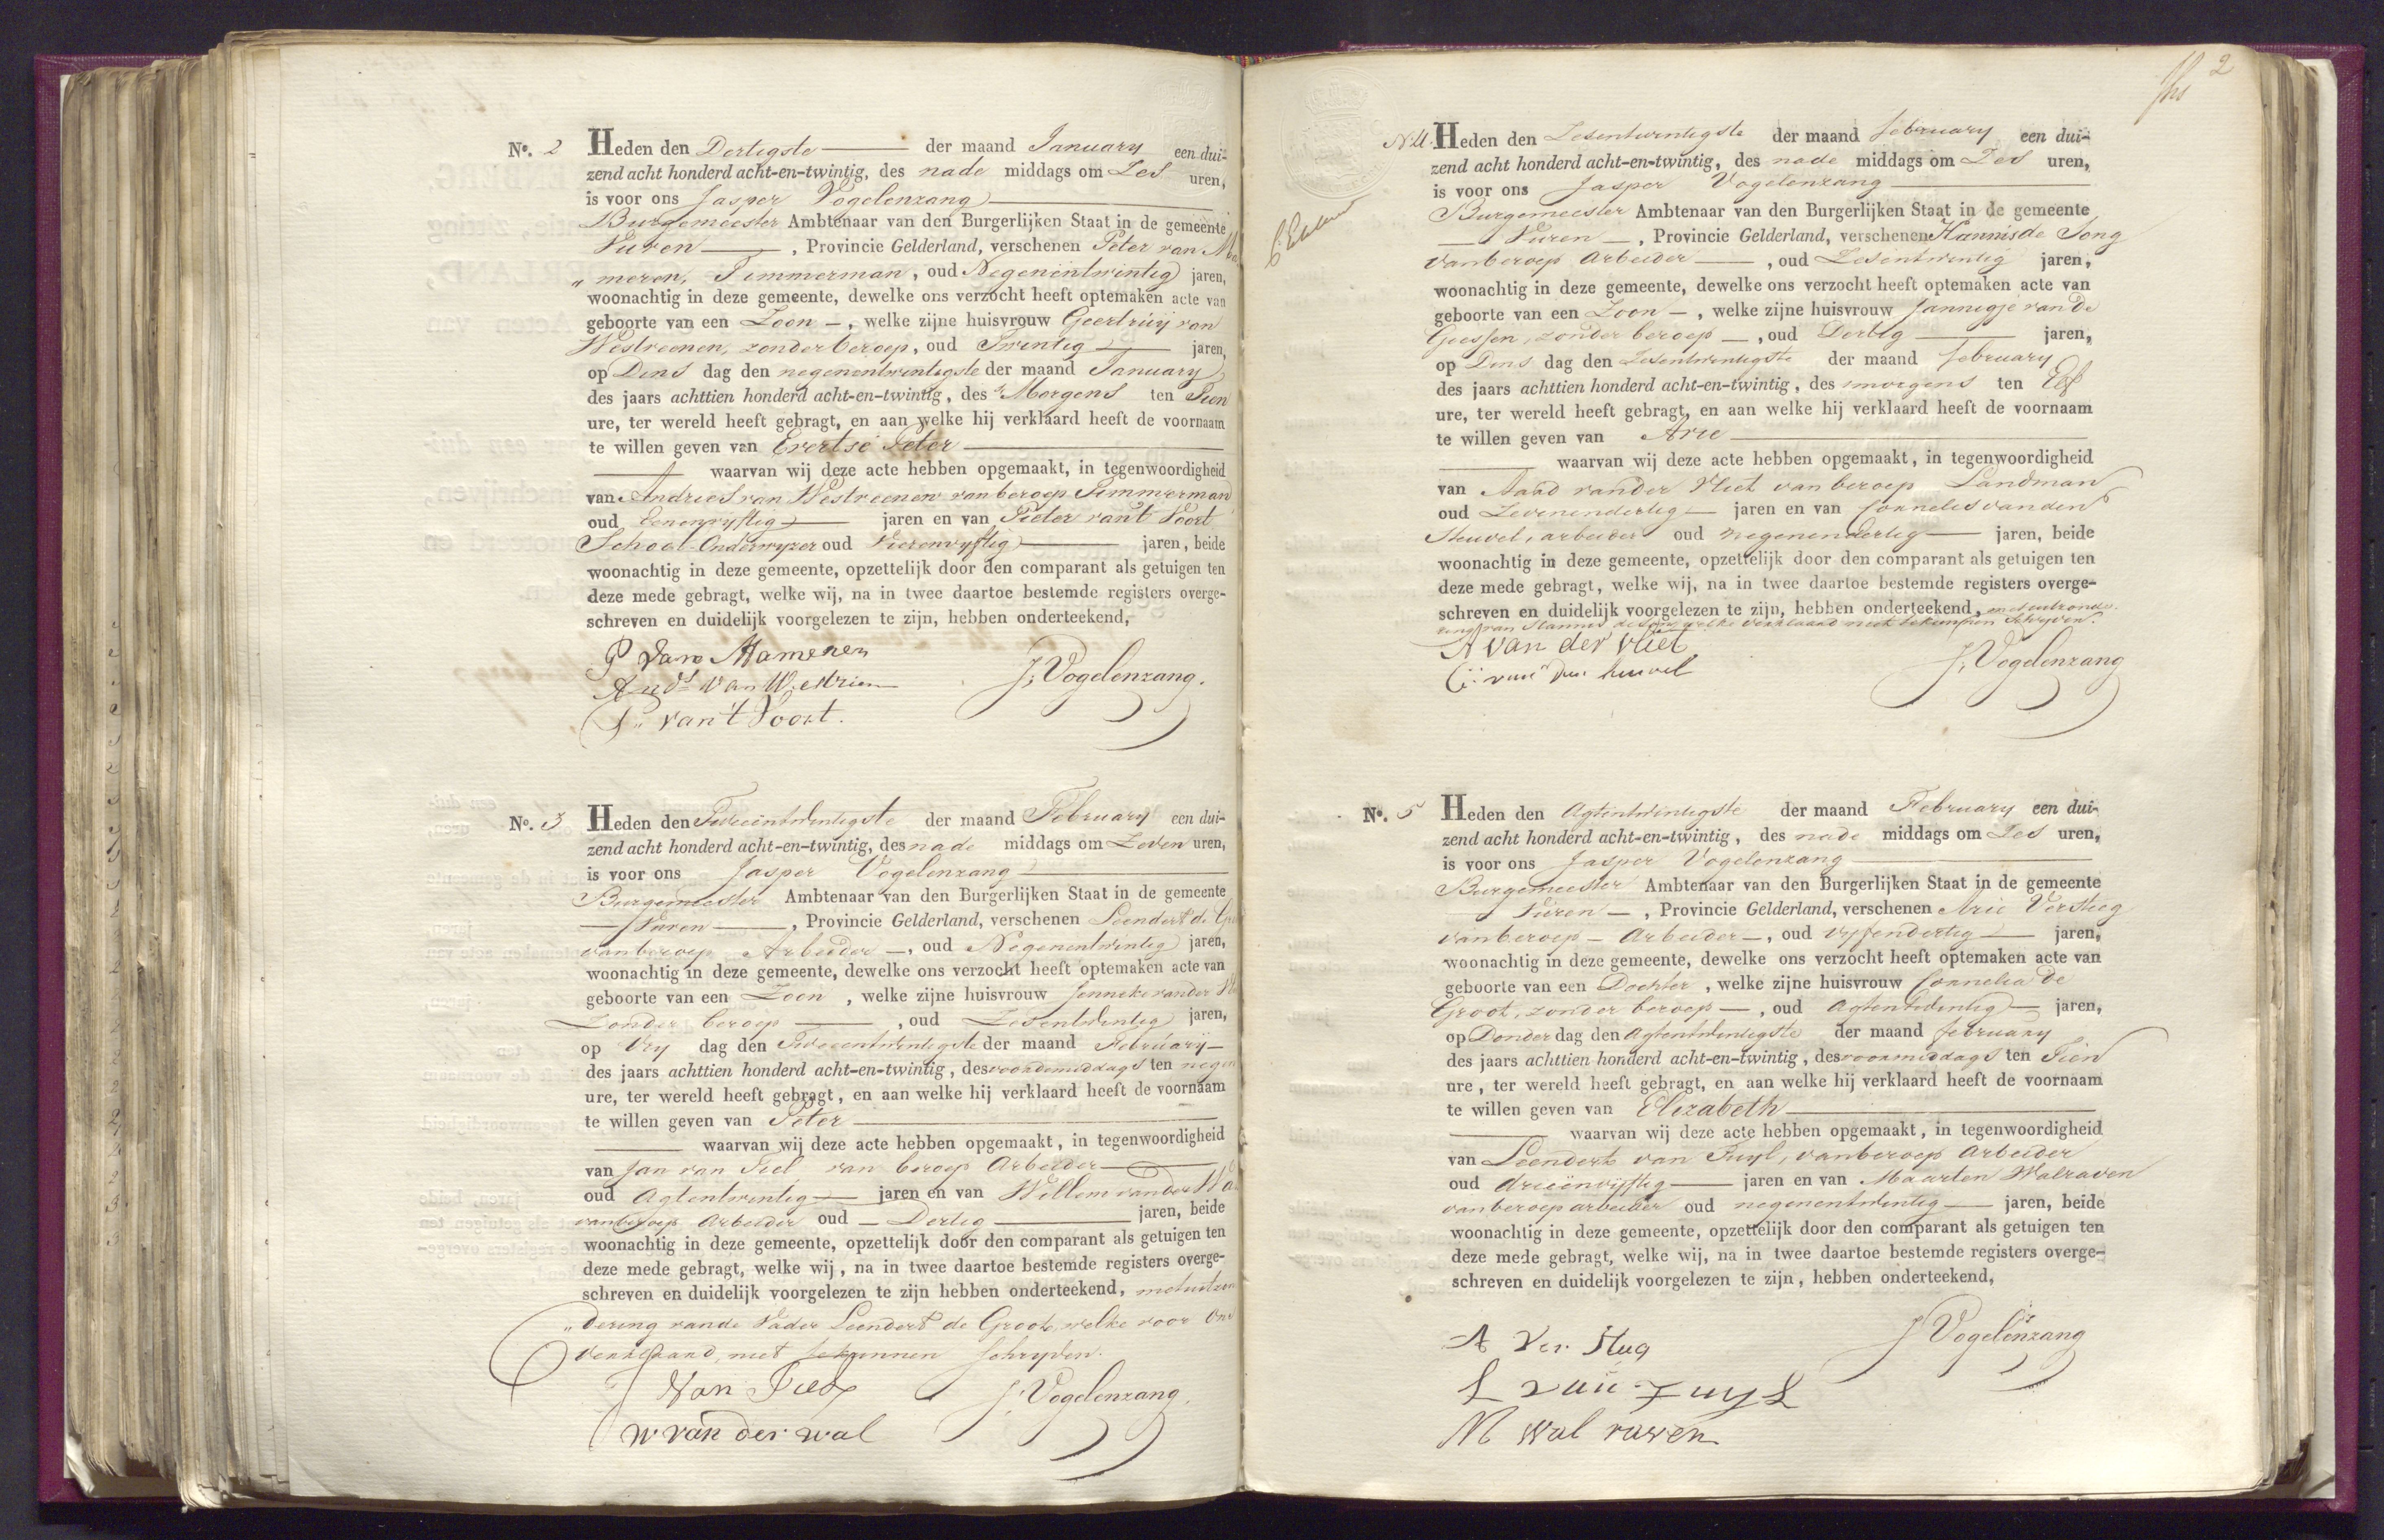 No. 2 Heden den Dertigste der maand January een dui-
zend acht honderd acht-en-twintig, des nade middags om Zes uren,
is voor ons Jasper Vogelenzang
Burgemeester Ambtenaar van den Burgerlijken Staat in de gemeente
Vuren, Provincie Gelderland, verschenen Peter van Ma
„meren, Timmerman, oud Negenentwintig jaren,
woonachtig in deze gemeente, dewelke ons verzocht heeft optemaken acte van
geboorte van een Zoon, welke zijne huisvrouw Geertruij van
Westreenen, zonder beroep, oud Twintig jaren,
op Dins dag den negenentwintigste der maand January
des jaars achttien honderd acht-en-twintig, des Morgens ten Tien
ure, ter wereld heeft gebragt, en aan welke hij verklaard heeft de voornaam
te willen geven van Evertse Peter
waarvan wij deze acte hebben opgemaakt, in tegenwoordigheid
van Andries van Westreenen van beroep Timmerman
oud Eenenvyftig jaren en van Pieter van't Voort
School-Onderwyzer oud Vierenvyftig jaren, beide
woonachtig in deze gemeente, opzettelijk door den comparant als getuigen ten
deze mede gebragt, welke wij, na in twee daartoe bestemde registers overge-
schreven en duidelijk voorgelezen te zijn, hebben onderteekend,
P van Mameren
Ands van Westrien
J. Vogelenzang.
P. van 't Voort.
No. 3 Heden den Tweeentwintigste der maand February een dui-
zend acht honderd acht-en-twintig, des nade middags om Zeven uren,
is voor ons Jasper Vogelenzang
Burgemeester Ambtenaar van den Burgerlijken Staat in de gemeente
Vuren, Provincie Gelderland, verschenen Leendert de
van beroep Arbeider, oud Negenentwintig jaren,
woonachtig in deze gemeente, dewelke ons verzocht heeft optemaken acte van
geboorte van een Zoon, welke zijne huisvrouw Jenneke vander
Zonder beroep, oud Zesentwintig jaren,
op Vry dag den Tweeentwintigste der maand February
des jaars achttien honderd acht-en-twintig, des voordemiddags ten negen
ure, ter wereld heeft gebragt, en aan welke hij verklaard heeft de voornaam
te willen geven van Peter
waarvan wij deze acte hebben opgemaakt, in tegenwoordigheid
van Jan van Tiel van beroep Arbeider
oud Agtentwintig jaren en van Willem vander Wa
van beroep Arbeider oud Dertig jaren, beide
woonachtig in deze gemeente, opzettelijk door den comparant als getuigen ten
deze mede gebragt, welke wij, na in twee daartoe bestemde registers overge-
schreven en duidelijk voorgelezen te zijn hebben onderteekend, met uitzon
„dering van de Vader Leendert de Groot, welke voor Ons
verklaard, niet te kunnen schryven.
J Van Tiel
J. Vogelenzang.
W van der wal
2
N 4. Heden den Zesentwintigste der maand february een dui-
zend acht honderd acht-en-twintig, des nade middags om Zes uren,
is voor ons Jasper Vogelenzang
Burgemeester Ambtenaar van den Burgerlijken Staat in de gemeente
Vuren, Provincie Gelderland, verschenen Hannis de Jong
van beroep Arbeider, oud Zesentwintig jaren,
woonachtig in deze gemeente, dewelke ons verzocht heeft optemaken acte van
geboorte van een Zoon, welke zijne huisvrouw Jannigje van de
Giessen, zonder beroep, oud Dertig jaren,
op Dins dag den Zesentwintigste der maand february
des jaars achttien honderd acht-en-twintig, des smorgens ten Elf
ure, ter wereld heeft gebragt, en aan welke hij verklaard heeft de voornaam
te willen geven van Arie
waarvan wij deze acte hebben opgemaakt, in tegenwoordigheid
van Aard vander Vliet van beroep Landman
oud Zevenendertig jaren en van Cornelis van den
Heuvel, arbeider oud negenendertig jaren, beide
woonachtig in deze gemeente, opzettelijk door den comparant als getuigen ten
deze mede gebragt, welke wij, na in twee daartoe bestemde registers overge-
schreven en duidelijk voorgelezen te zijn, hebben onderteekend, met uitzonde-
ring van Hannis de Jong welke verklaard niet te kunnen schryven.
A van der vliet
J. Vogelenzang
C: van den heuvel
No. 5 Heden den Agtentwintigste der maand February een dui-
zend acht honderd acht-en-twintig, des nade middags om Zes uren,
is voor ons Jasper Vogelenzang
Burgemeester Ambtenaar van den Burgerlijken Staat in de gemeente
Vuren, Provincie Gelderland, verschenen Arie Versteeg
van beroep Arbeider, oud vyfendertig jaren,
woonachtig in deze gemeente, dewelke ons verzocht heeft optemaken acte van
geboorte van een Dochter, welke zijne huisvrouw Cornelia de
Groot, zonder beroep, oud Agtentwintig jaren,
op Donder dag den Agtentwintigste der maand february
des jaars achttien honderd acht-en-twintig, des voormiddags ten Tien
ure, ter wereld heeft gebragt, en aan welke hij verklaard heeft de voornaam
te willen geven van Elizabeth
waarvan wij deze acte hebben opgemaakt, in tegenwoordigheid
van Leendert van Tuyl, van beroep Arbeider
oud drieenvijftig jaren en van Maarten Walraven
van beroep arbeider oud negenentwintig jaren, beide
woonachtig in deze gemeente, opzettelijk door den comparant als getuigen ten
deze mede gebragt, welke wij, na in twee daartoe bestemde registers overge-
schreven en duidelijk voorgelezen te zijn, hebben onderteekend,
A Ver Steg
J Vogelenzang
L van Tuyl
M wal raven